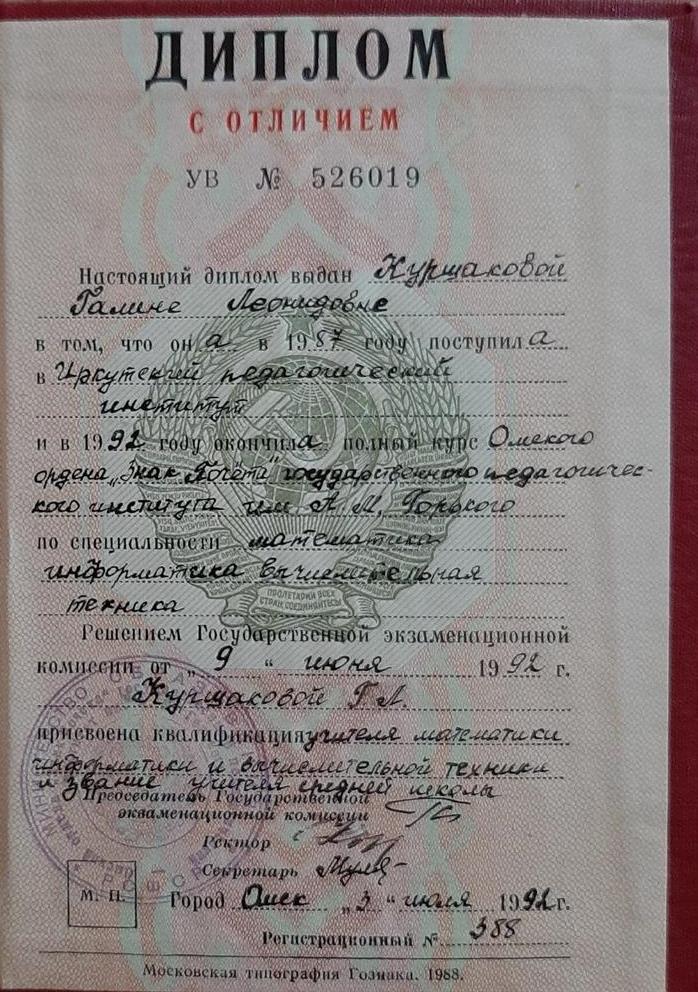 ДИПЛОМ
С ОТЛИЧИЕМ
УВ № 526019
Настоящий диплом выдан Куршаковой
Галине Леонидовне
в том, что она в 1987 году поступила
в Иркутский педагогический
институт
и в 1992 году окончила полный курс Омского
ордена „Знак Почета" государственного педагогичес-
кого института им А. М. Горького
по специальности математика
информатика вычислительная
техника
ПРОЛЕТАРИИ ВСЕХ
СТРАН, СОЕДИНЯЙТЕСЬ!
Решением Государственной экзаменационной
комиссии от „9" июня 1992 г.
Куршаковой Г Л.
присвоена квалификация учителя математики
информатики и вычислительной техники
и звание учителя средней школы
Председатель Государственной
экзаменационной комиссии
Ректор
Секретарь
М. П.
Город Омск „3" июля 1992 г.
Регистрационный № 388
Московская типография Гознака. 1988.